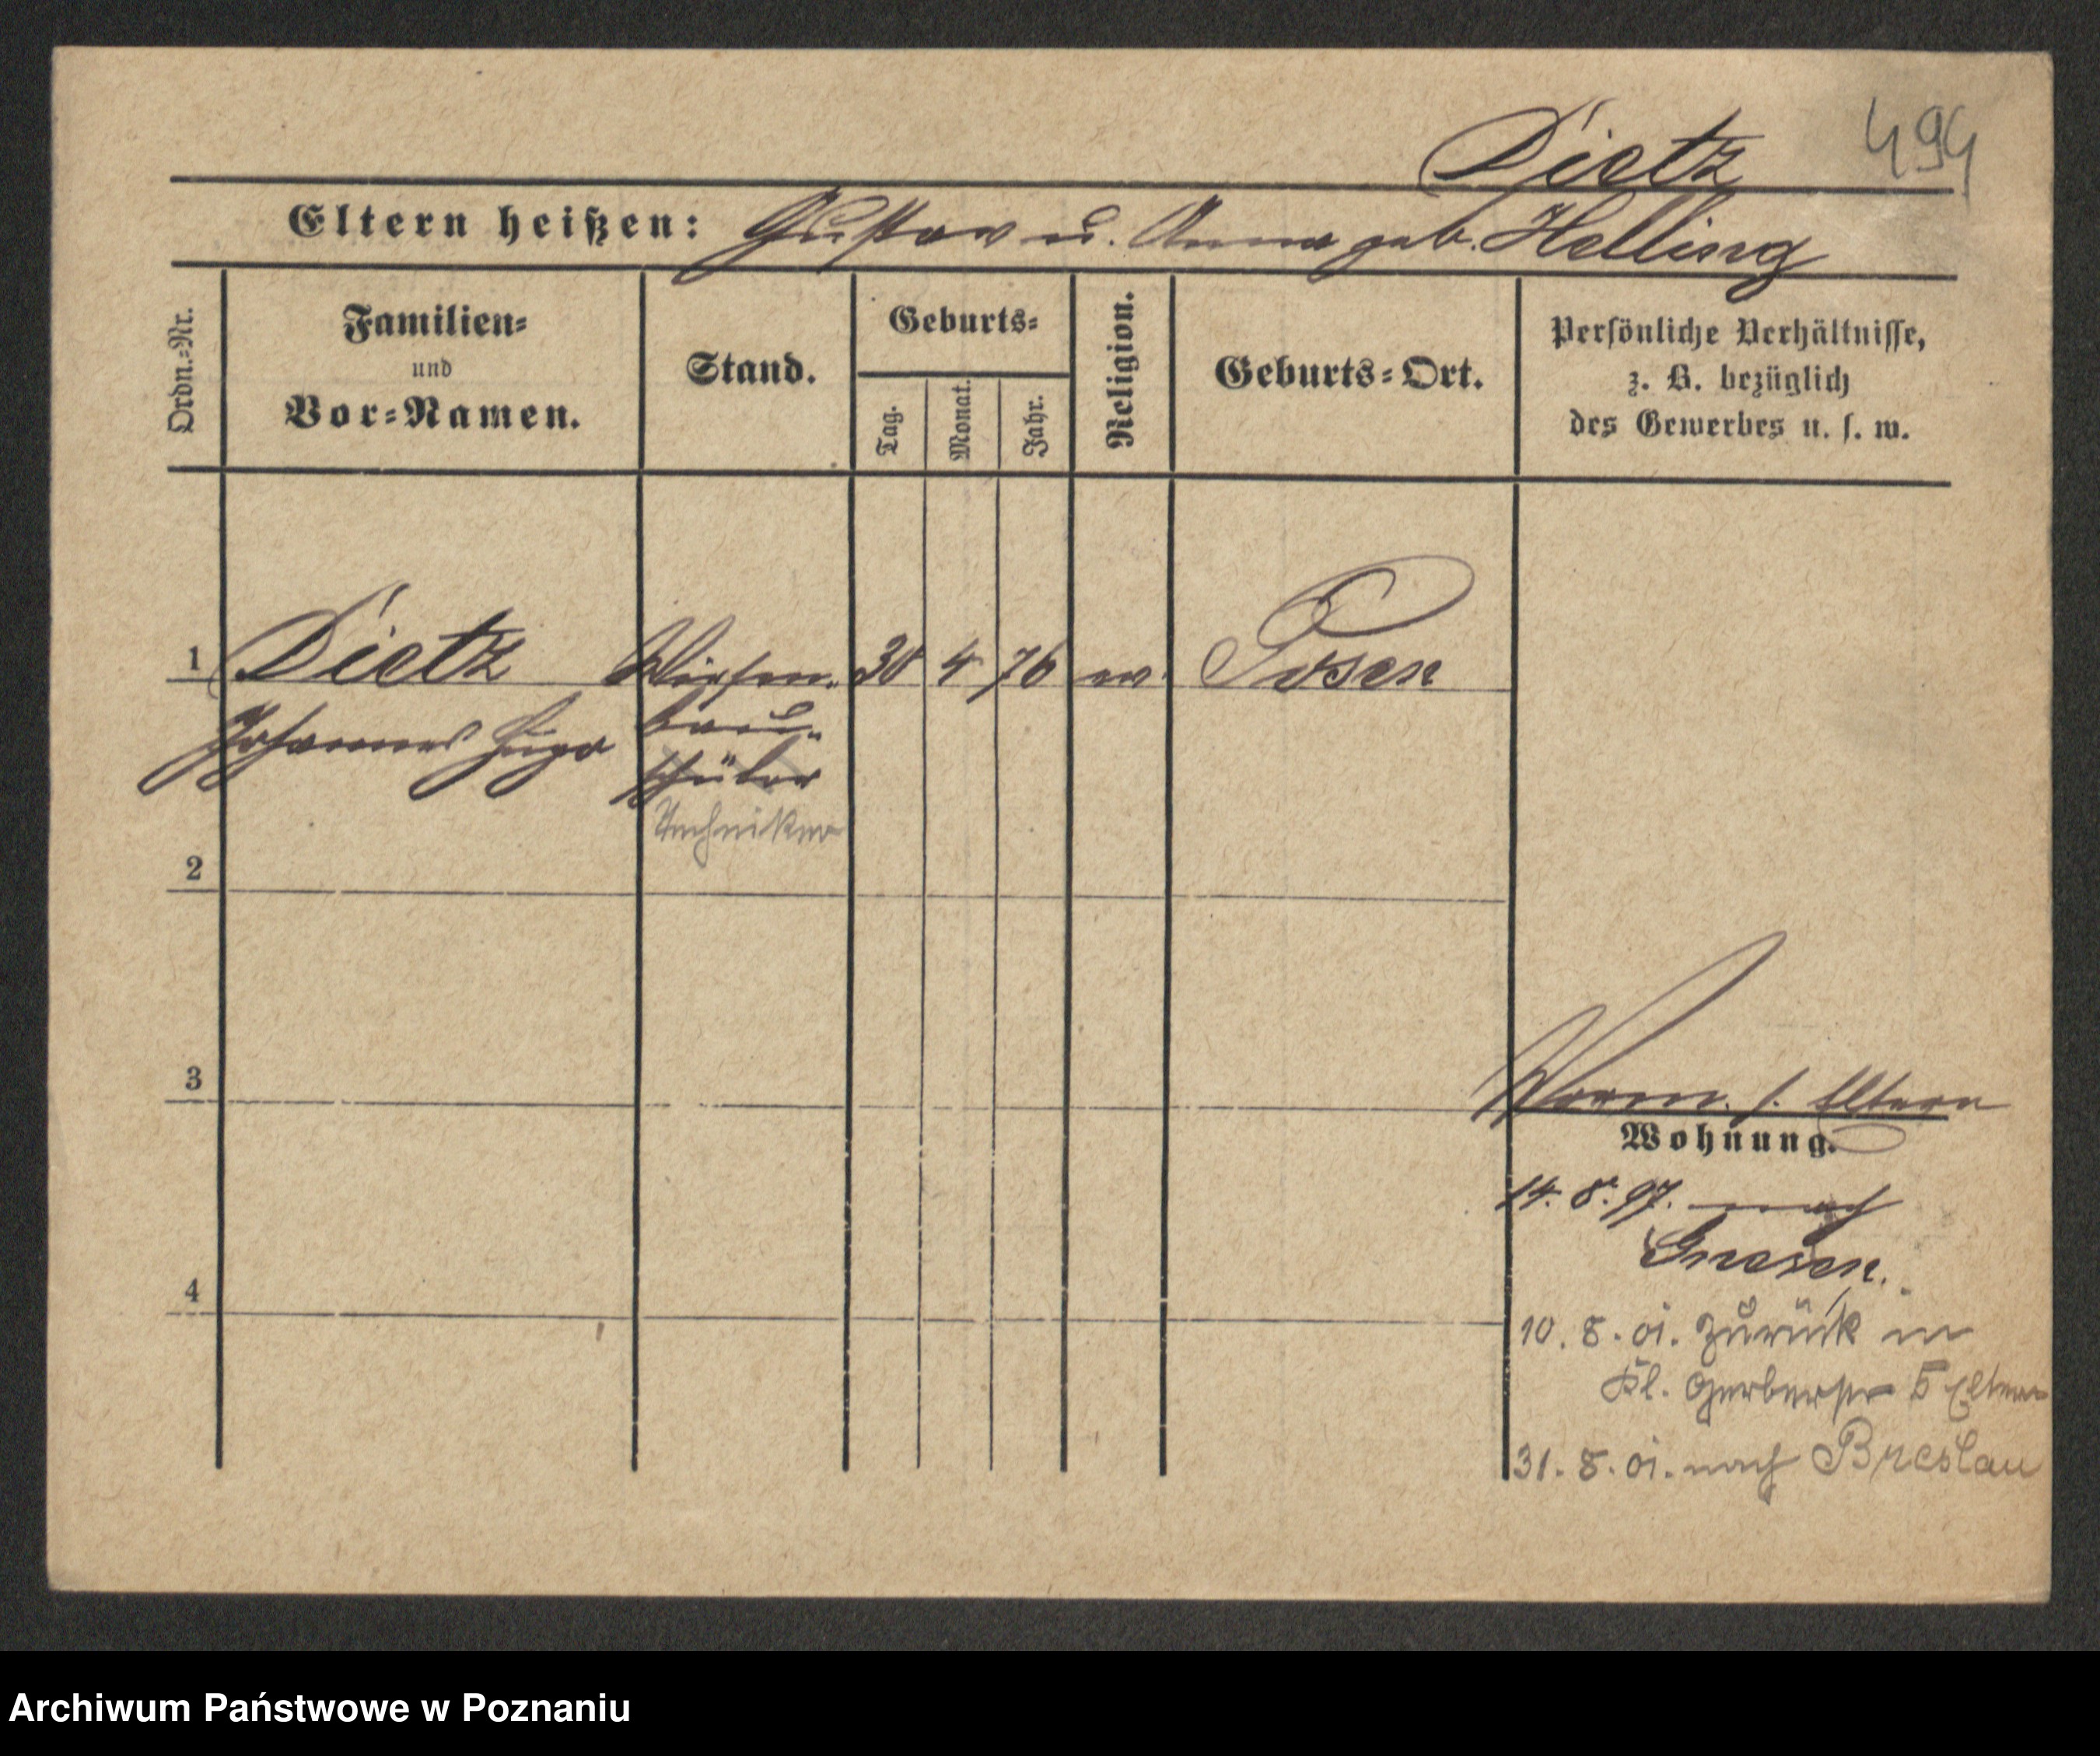 494
Dietz
Eltern heißen: Gustav u. Anna geb. Helling
Ordn.=Nr.
Familien=
und
Vor=Namen.
Stand.
Geburts=
Tag.
Monat.
Jahr.
Religion.
Geburts=Ort.
Persönliche Verhältnisse,
z. B. bezüglich
des Gewerbes u. s. w.
1 Dietz Wiesen- 30 4 76 ev. Posen
Johannes Hugo bau-
schüler
Techniker
2
3
Vorm. s. Eltern
Wohnung.
14. 8. 97. nach
Gnesen.
4
10. 8. 01. zurück in
Kl. Gerberstr 5 Eltern
31. 8. 01. nach Breslau
Archiwum Państwowe w Poznaniu